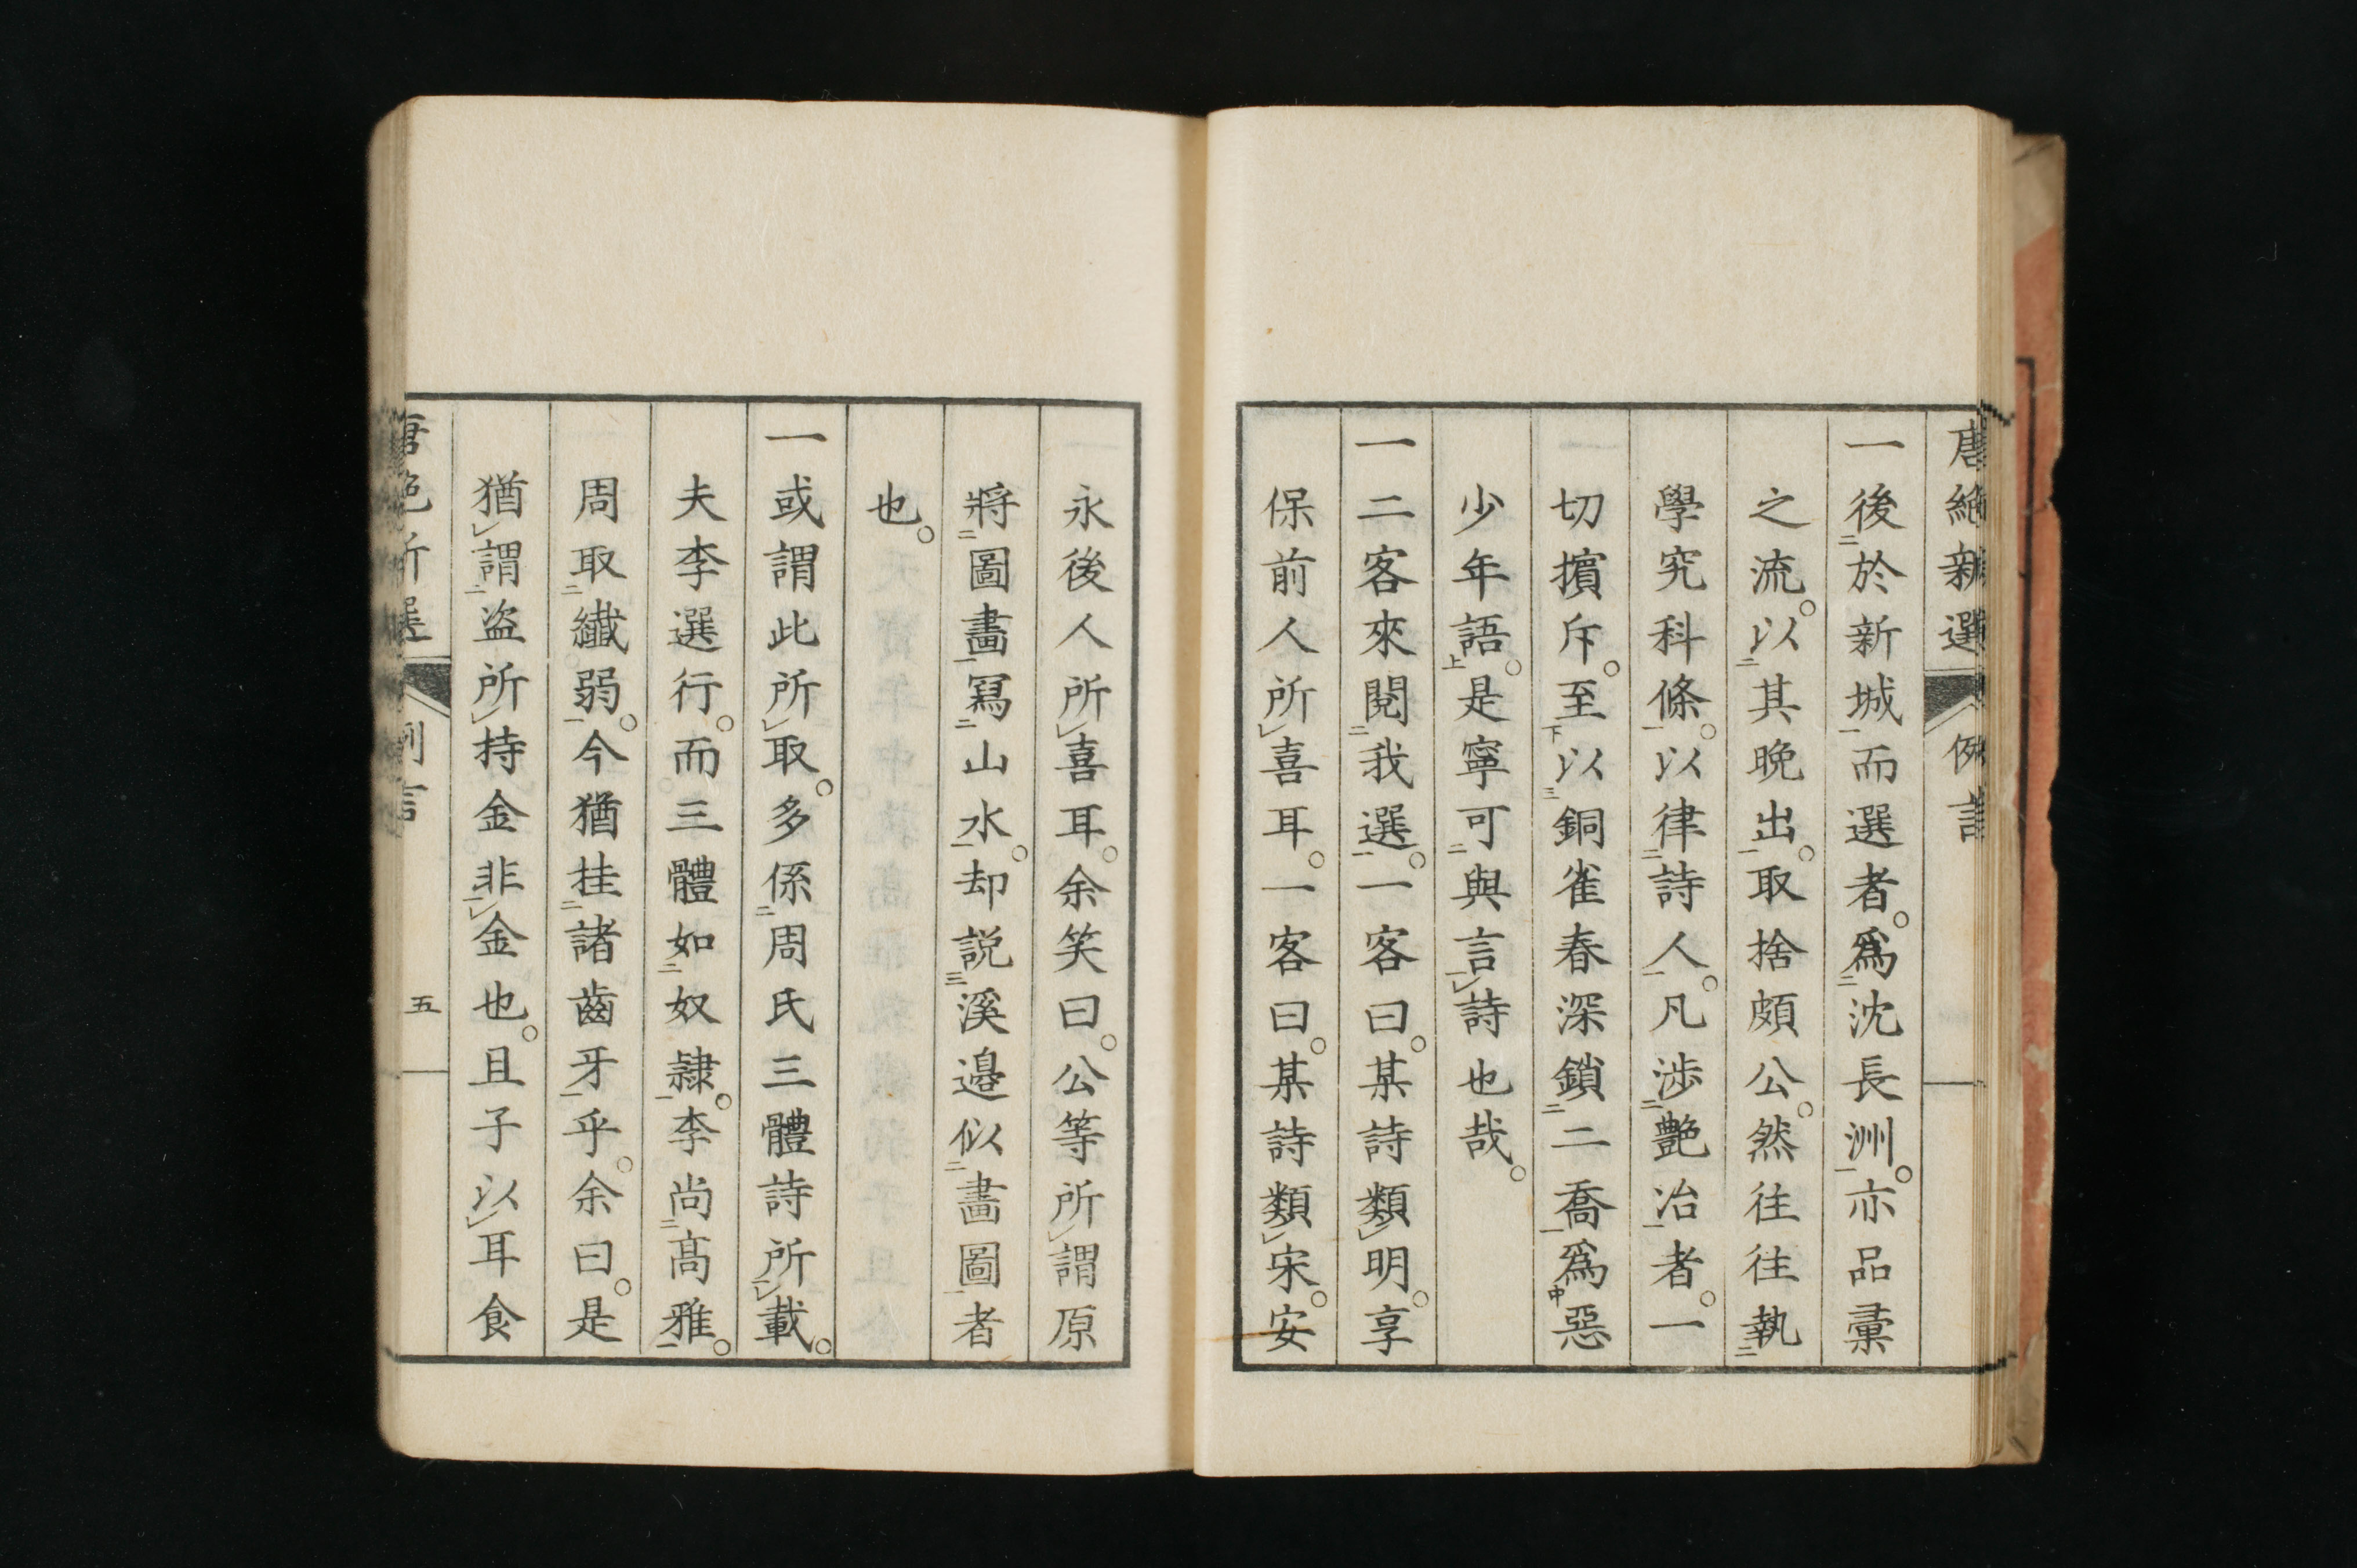 唐絶新選 例言
一後於新城而選者。爲沈長洲。亦品彙
之流。以其晩出。取捨頗公。然往往執
學究科條。以律詩人。凡渉艶冶者。一
切擯斥。至以銅雀春深鎖二喬爲惡
少年語。是寧可與言詩也哉。
一二客來閱我選。一客曰。某詩類明。享
保前人所喜耳。一客曰。某詩類宋。安
永後人所喜耳。余笑曰。公等所謂原
將圖畫冩山水。却説溪邉似畫圖者
也。
一或謂此所取。多係周氏三體詩所載。
夫李選行。而三體如奴隷。李尚髙雅。
周取纎弱。今猶挂諸齒牙乎。余曰。是
猶謂盗所持金非金也。且子以耳食
唐絶新選 例言 五